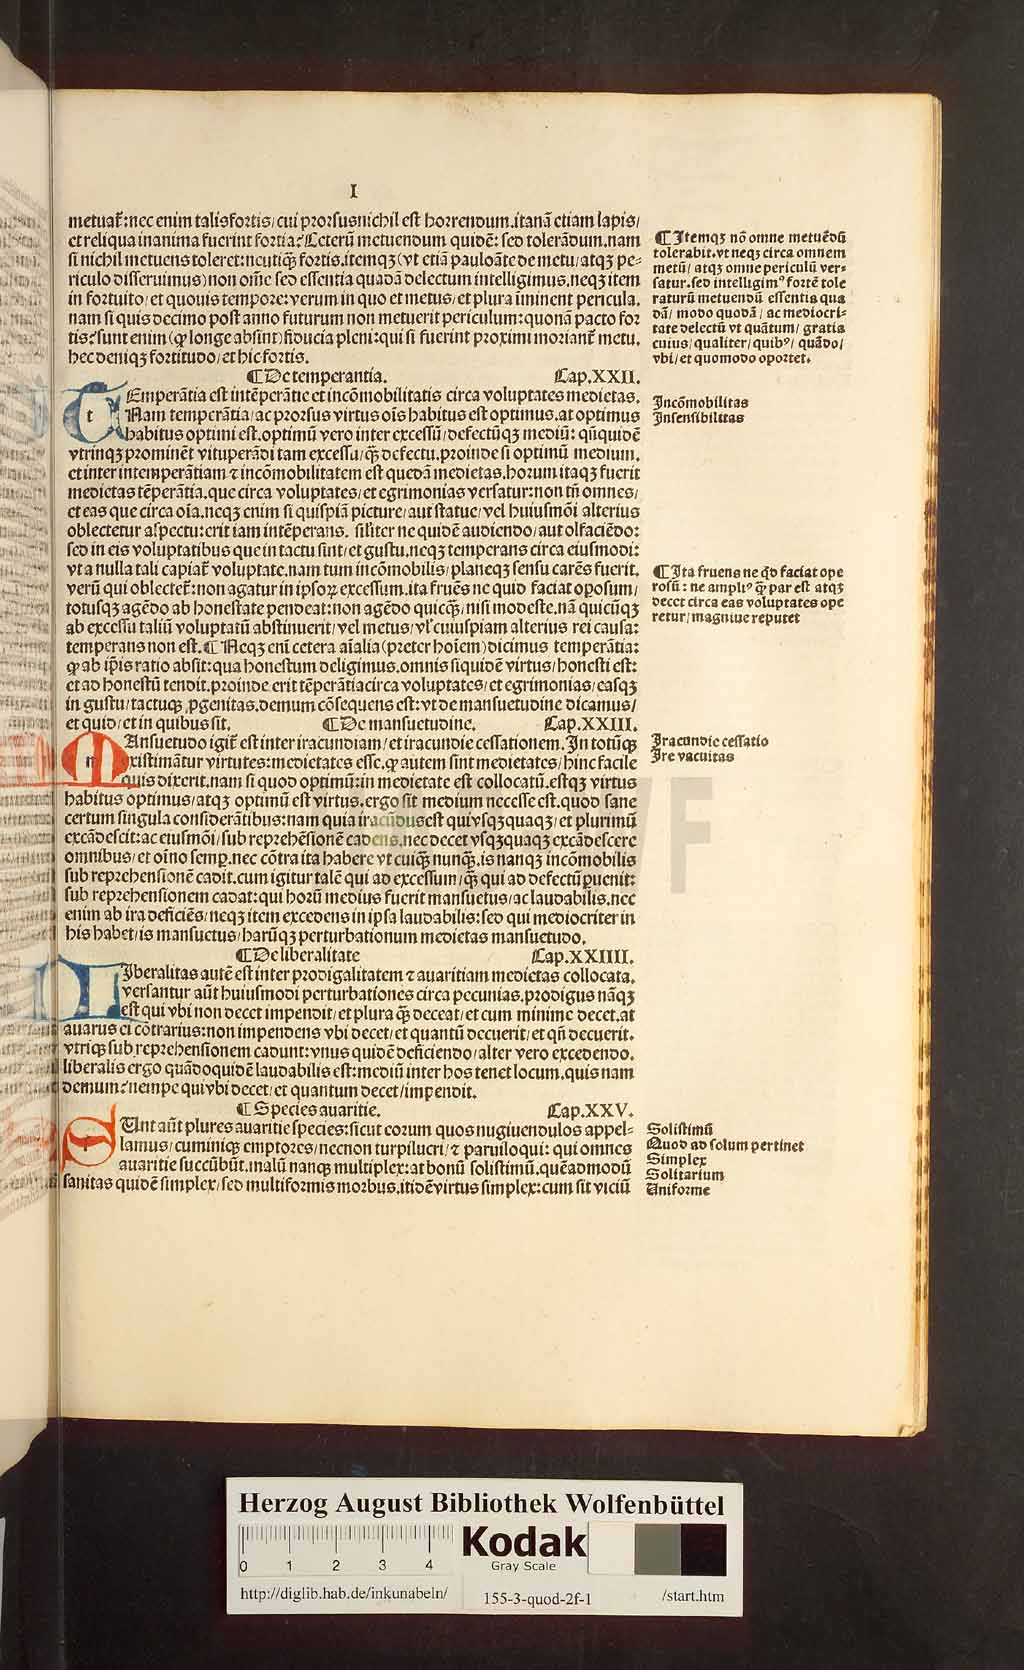 I
metuat᷑: nec enim talis fortis/ cui prorsus nichil est horrendum. itanā etiam lapis/
et reliqua inanima fuerint fortia? Ceterū metuendum quidē: sed tolerādum. nam
si nichil metuens toleret: neutiqꝫ fortis. itemqꝫ (vt etiā pauloāte de metu/ atqꝫ pe-
riculo disseruimus) non om̄e sed essentia quadā delectum intelligimus. neqꝫ item
in fortuito/ et quouis tempore: verum in quo et metus/ et plura iminent pericula.
nam si quis decimo post anno futurum non metuerit periculum: quonā pacto for
tis? sunt enim (ꝙ longe absint) fiducia pleni: qui si fuerint proximi moriant᷑ metu.
hec deniqꝫ fortitudo/ et hic fortis.
¶ De temperantia. Cap. XXII.
t Emperātia est intēperātie et incōmobilitatis circa voluptates medietas.
Nam temperātia/ ac prorsus virtus oīs habitus est optimus. at optimus
habitus optimi est. optimū vero inter excessū/ defectūqꝫ mediū: qn̄quidē
vtrinqꝫ prominēt vituperādi tam excessu/ qꝫ̄ defectu. proinde si optimū medium.
et inter intemperātiam ⁊ incōmobilitatem est quedā medietas. horum itaqꝫ fuerit
medietas tēperātia. que circa voluptates/ et egrimonias versatur: non tn̄ omnes/
et eas que circa oīa. neqꝫ enim si quispiā picture/ aut statue/ vel huiusmōi alterius
oblectetur aspectu: erit iam intēperans. siliter ne quidē audiendo/ aut olfaciēdo:
sed in eis voluptatibus que in tactu sint/ et gustu. neqꝫ temperans circa eiusmodi:
vt a nulla tali capiat᷑ voluptate. nam tum incōmobilis/ planeqꝫ sensu carēs fuerit.
verū qui oblectet᷑: non agatur in ipsoꝝ excessum. ita fruēs ne quid faciat oposum/
totusqꝫ agēdo ab honestate pendeat: non agēdo quicqꝫ̄/ nisi modeste. nā quicūqꝫ
ab excessu taliū voluptatū abstinuerit/ vel metus/ vl' cuiuspiam alterius rei causa:
temperans non est. ¶ Neqꝫ eni cetera aīalia (preter hoīem) dicimus temperātia:
ꝙ ab ip̄is ratio absit: qua honestum deligimus. omnis siquidē virtus/ honesti est:
et ad honestū tendit. proinde erit tēperātia circa voluptates/ et egrimonias/ easqꝫ
in gustu/ tactuqꝫ ꝓgenitas. demum cōsequens est: vt de mansuetudine dicamus/
et quid/ et in quibus sit. ¶ De mansuetudine. Cap. XXIII.
m Ansuetudo igit᷑ est inter iracundiam/ et iracundie cessationem. In totūqꝫ
existimātur virtutes: medietates esse. ꝙ autem sint medietates/ hinc facile
quis dixerit. nam si quod optimū: in medietate est collocatū. estqꝫ virtus
habitus optimus/ atqꝫ optimū est virtus. ergo sit medium necesse est. quod sane
certum singula considerātibus: nam quia iracūdus est qui vsqꝫquaqꝫ/ et plurimū
excādescit: ac eiusmōi/ sub reprehēsionē cadens. nec decet vsqꝫquaqꝫ excādescere
omnibus/ et oīno semꝑ. nec cōtra ita habere vt cuiqꝫ̄ nunqꝫ̄. is nanqꝫ incōmobilis
sub reprehensionē cadit. cum igitur talē qui ad excessum/ qꝫ̄ qui ad defectū ꝑuenit:
sub reprehensionem cadat: qui horū medius fuerit mansuetus/ ac laudabilis. nec
enim ab ira deficiēs/ neqꝫ item excedens in ipsa laudabilis: sed qui mediocriter in
his habet/ is mansuetus/ harūqꝫ perturbationum medietas mansuetudo.
¶ De liberalitate Cap. XXIIII.
LIberalitas autē est inter prodigalitatem ⁊ auaritiam medietas collocata.
versantur aūt huiusmodi perturbationes circa pecunias. prodigus nāqꝫ
est qui vbi non decet impendit/ et plura qꝫ̄ deceat/ et cum minime decet. at
auarus ei cōtrarius: non impendens vbi decet/ et quantū decuerit/ et qn̄ decuerit.
vtriqꝫ sub reprehensionem cadunt: vnus quidē deficiendo/ alter vero excedendo.
liberalis ergo quādoquidē laudabilis est: mediū inter hos tenet locum. quis nam
demum? nempe qui vbi decet/ et quantum decet/ impendit.
¶ Species auaritie. Cap. XXV.
SUnt aūt plures auaritie species: sicut eorum quos nugiuendulos appel-
lamus/ cuminiqꝫ emptores/ necnon turpilucri/ ⁊ paruiloqui: qui omnes
auaritie succūbūt. malū nanqꝫ multiplex: at bonū solistimū. quēadmodū
sanitas quidē simplex/ sed multiformis morbus. itidē virtus simplex: cum sit viciū
¶ Itemqꝫ nō omne metuēdū
tolerabit. vt neqꝫ circa omnem
metū/ atqꝫ omne periculū ver-
satur. sed intelligimꝰ fortē tole
raturū metuendū essentia qua
dā/ modo quodā/ ac mediocri-
tate delectū vt quātum/ gratia
cuius/ qualiter/ quibꝰ/ quādo/
vbi/ et quomodo oportet.
Incōmobilitas
Insensibilitas
¶ Ita fruens ne qd̄ faciat ope
rosū: ne ampliꝰ qꝫ̄ par est atqꝫ
decet circa eas voluptates ope
retur/ magniue reputet
Iracundie cessatio
Ire vacuitas
Solistimū
Quod ad solum pertinet
Simplex
Solitarium
Uniforme
Herzog August Bibliothek Wolfenbüttel
0 1 2 3 4
Kodak
Gray Scale
http://diglib.hab.de/inkunabeln/ 155-3-quod-2f-1 /start.htm